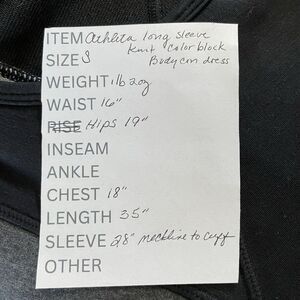 ITEM Athleta long sleeve
knit color block
SIZE S Bodycon dress
WEIGHT 1 lb 2oz
WAIST 16"
RISE Hips 19"
INSEAM
ANKLE
CHEST 18"
LENGTH 35"
SLEEVE 28" neckline to cuff
OTHER